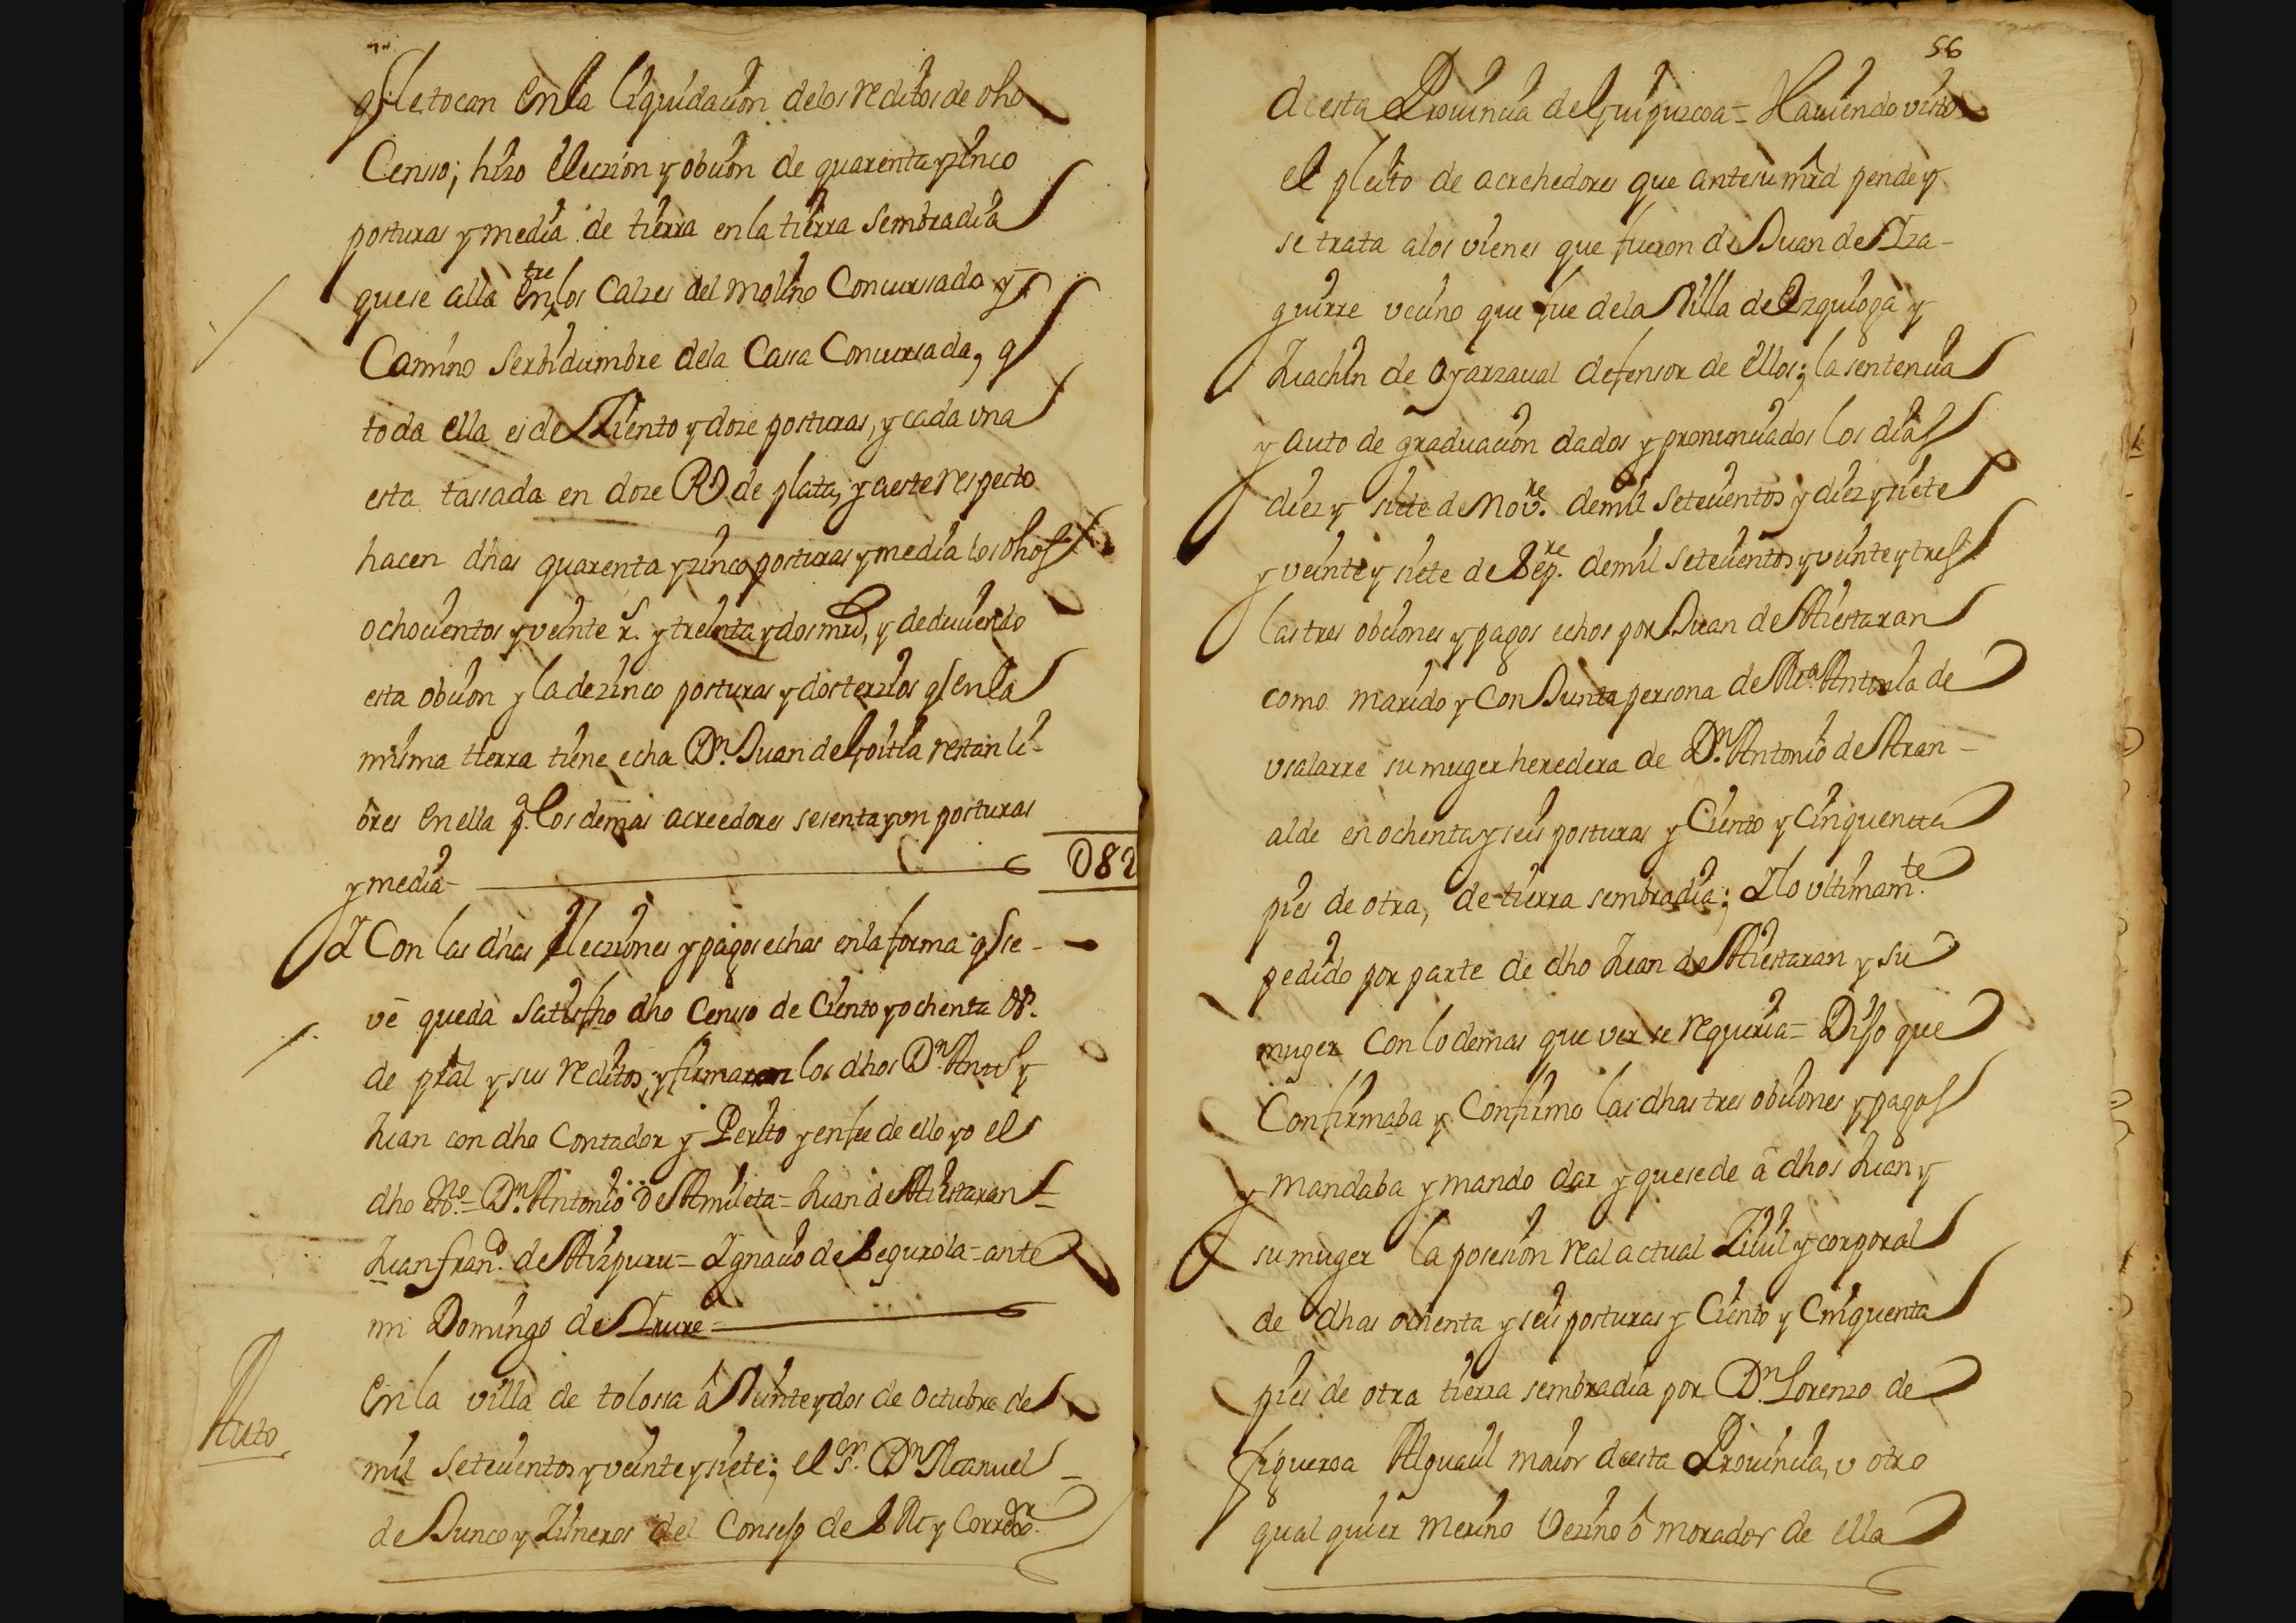 q̃ le tocan en la liquidacion de los reditos de dho
Censso; hizo eleczion y obcion de quarenta y zinco
posturas y media de tierra en la tierra sembradia
que se alla entre los Calzes del molino Concursado y
Camino Serbidumbre de la Cassa Concursada, q̃
toda ella es de Ziento y doze posturas, y cada vna
esta tassada en doze Rs de plata, y a este respecto
hacen dhas quarenta y zinco posturas y media los dhos
ochocientos y veinte rs. y treinta y dos mrs, y deduciendo
esta obcion y la de zinco posturas y dos terzios q̃ en la
misma tierra tiene echa Dn. Juan de Goitia restan li-
bres en ella pa. los demas acreedores sesenta y vn posturas
y media-
U82
Y Con las dhas Elecziones y pagos echas en la forma q̃ se-
vè queda Satisfho dho Censo de Ciento y ochenta Ds.
de pral y sus reditos, y firmaron los dhos Dn. Anto y
Juan con dho Contador y Perito y en fee de ello yo el
dho esno.= Dn. Antonio de Amileta= Juan de Aiestaran=
Juan Frano. de Aizpuru= Ygnacio de Segurola= ante
mi Domingo de Yrure=
Auto
En la villa de tolossa â Veinte y dos de octubre de
mil setecientos y veinte y siete; el Sr. Dn Manuel
de Junco y Zisneros del Consejo de S M y Corredor.
56
de esta Prouincia de Guipuzcoa= Hauiendo visto
el pleito de acrehedores que ante su mrd pende y
se trata a los vienes que fueron de Juan de Yza-
guirre vecino que fue de la Villa de Ezquioga y
Juachin de oyarzaual defensor de ellos; la sentencia
y auto de graduacion dados y pronunciados los dias
diez y siete de Novre. de mil setecientos y diez y siete
y veinte y siete de Sepre. de mil setecientos y veinte y tres
las tres obciones y pagos echos por Juan de Aiestaran
como marido y Conjunta persona de Ma. Antonia de
vsalarre su muger heredera de Dn. Antonio de Aran-
alde en ochenta y seis posturas y Ciento y Cinquentta
pies de otra, de tierra sembradia; Y lo vltimamte.
pedido por parte de dho Juan de Aiestaran y su
muger con lo demas que ver se requeria= Dijo que
Confirmaba y Confirmo las dhas tres obciones y pagos
y mandaba y mando dar y que se de â dhos Juan y
su muger la posesion real actual Ziuil y corporal
de dhas ochenta y seis posturas y Ciento y Cinquenta
pies de otra tierra sembradia por Dn. Lorenzo de
figueroa Alguacil maior de esta Prouincia, v otro
qual quier merino Vezino ô morador de ella